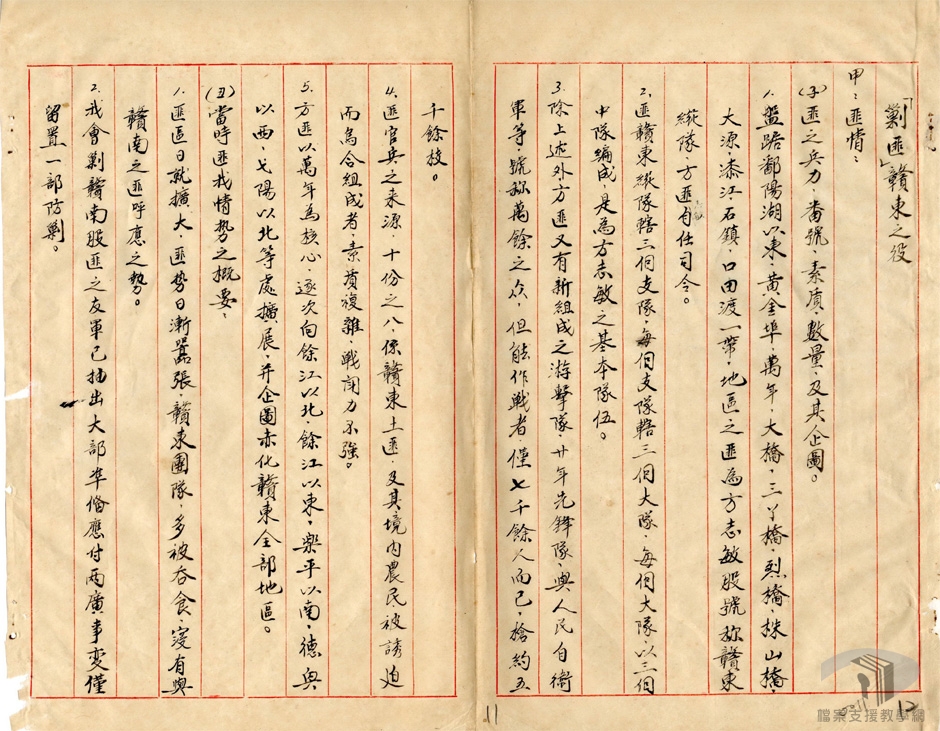 「剿匪」贛東之役
甲：匪情：
(子)匪之兵力、番號、素质、數量、及其企圖。
1. 盤踞鄱陽湖以東、黃金埠、萬年、大橋、三丫橋、烈橋、株山橋、
大源、漆江、石鎮、口由渡一帶、地區之匪為方志敏股號稱贛東
縱隊、方匪自任司令。
2. 匪贛東縱隊轄三個支隊、每個支隊轄三個大隊、每個大隊、以三個
中隊編成、是為方志敏之基本隊伍。
3. 除上述外方匪又有新組成之游擊隊、廿年先鋒隊、與人民自衛
軍等、號称萬餘之众、但能作戰者僅七千餘人而已、槍約五
千餘枝。
4. 匪官兵之来源、十份之八、係贛東土匪、及其境內農民被誘迫
而烏合組成者、素质複雜、戰鬥力不強。
5. 方匪以萬年為核心、逐次向餘江以北、餘江以東、樂平以南、德興
以西、弋陽以北等處擴展、并企圖赤化贛東全部地區。
(丑)當時匪我情勢之概要：
1. 匪區日就擴大、匪勢日漸囂張、贛東團隊、多被吞食、寖有與
贛南之匪呼應之勢。
2. 我會剿贛南股匪之友軍已抽出大部準俻應付兩廣事变僅
留置一部防剿。
11
12
檔案支援教學網